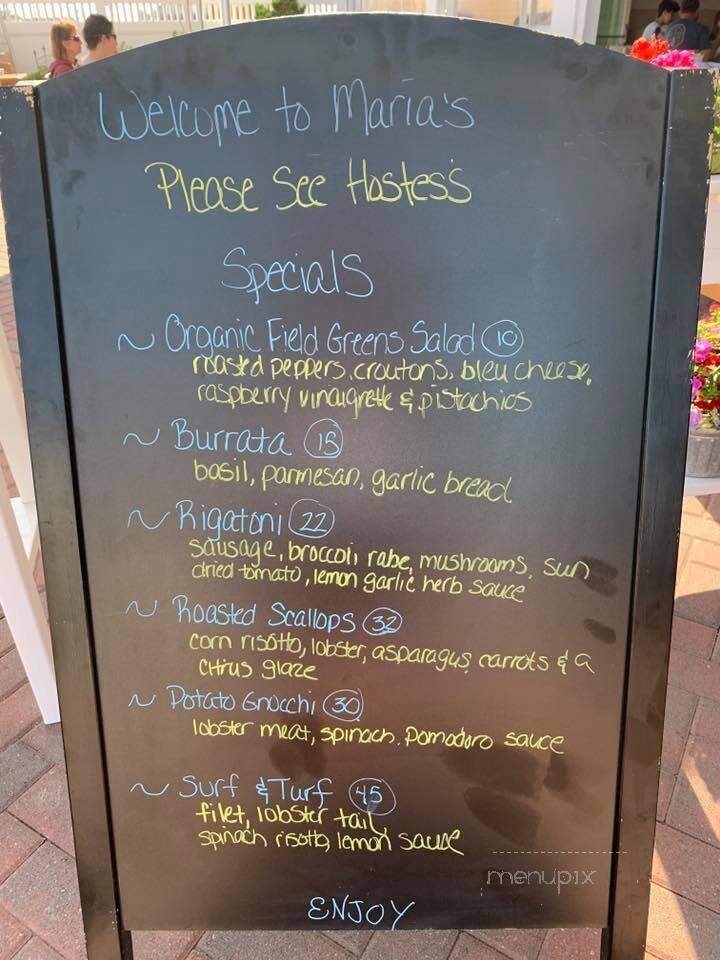 Welcome to Maria's
Please See Hostess
Specials
~ Organic Field Greens Salad 10
roasted peppers, croutons, bleu cheese,
raspberry vinaigrette & pistachios
~ Burrata 15
basil, parmesan, garlic bread
~ Rigatoni 22
sausage, broccoli rabe, mushrooms, sun
dried tomato, lemon garlic herb sauce
~ Roasted Scallops 32
corn risotto, lobster, asparagus, carrots & a
citrus glaze
~ Potato Gnocchi 30
lobster meat, spinach, pomodoro sauce
~ Surf & Turf 45
filet, lobster tail,
spinach risotto, lemon sauce
ENJOY
menupix